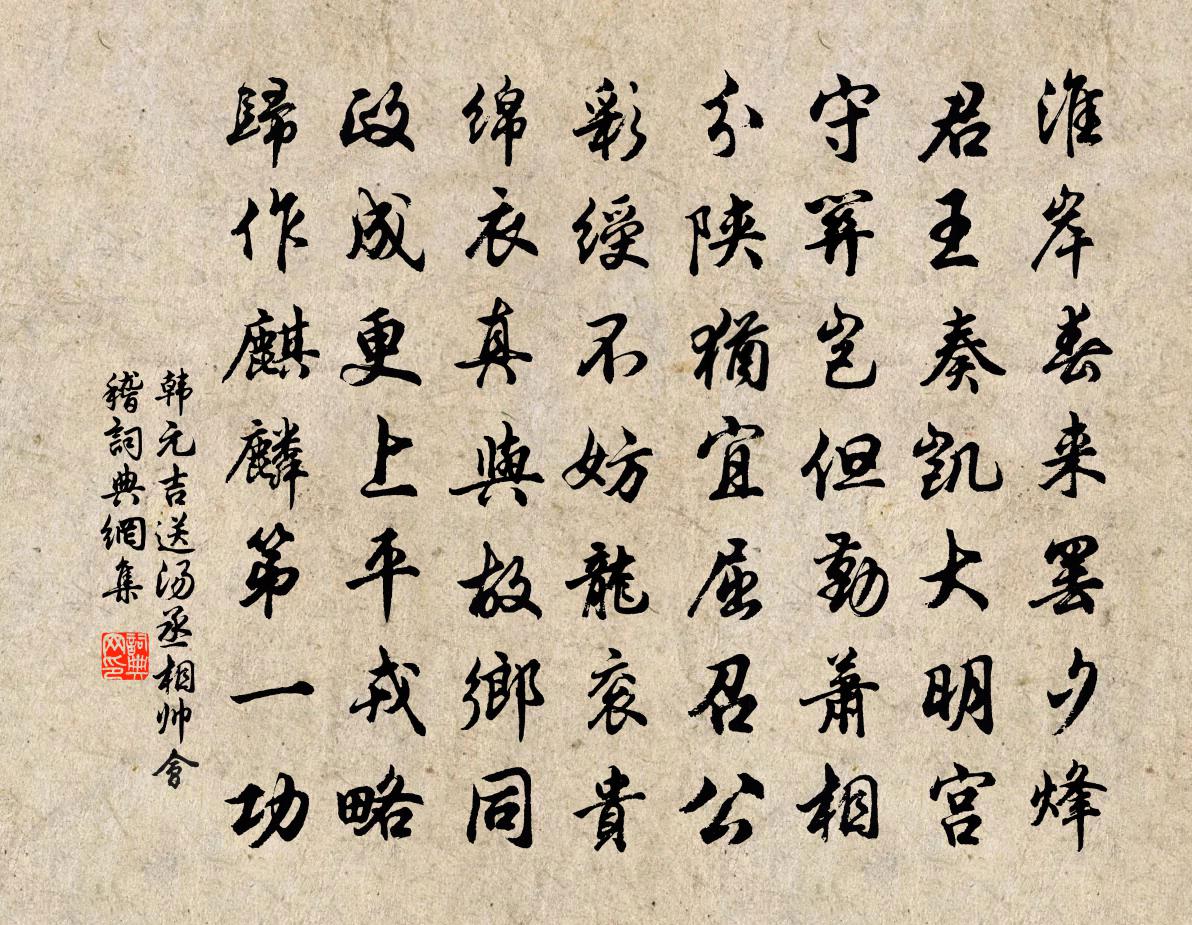 淮岸春来罢夕烽
君王奏凯大明宫
守关岂但勤萧相
分陕犹宜屈召公
彩绶不妨龍衮貴
绵衣真與故鄉同
政成更上平戎略
歸作麒麟第一功
韩元吉送汤丞相帅會
稽詞典網集
詞典
网印